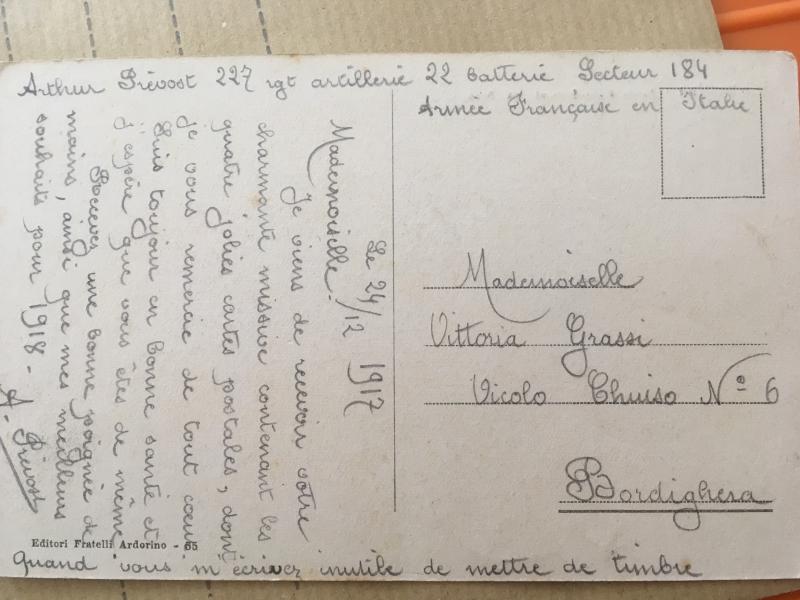 Arthur Prévost 227 rgt artillerie 22 batterie Secteur 184
Armée Française en Italie
Le 24/12 1917
Mademoiselle.
Je viens de recevoir votre
charmante missive contenant les
quatre jolies cartes postales, dont
je vous remercie de tout coeur
Suis toujour en bonne santé et
j'espère que vous êtes de même
Recevez une bonne poignée de
mains, ainsi que mes meilleurs
souhaits pour 1918 -
A. Prévost
Mademoiselle
Vittoria Grassi
Vicolo Chuiso Nº 6
Bordighera
Editori Fratelli Ardorino - 65
quand vous m'écrivez inutile de mettre de timbre